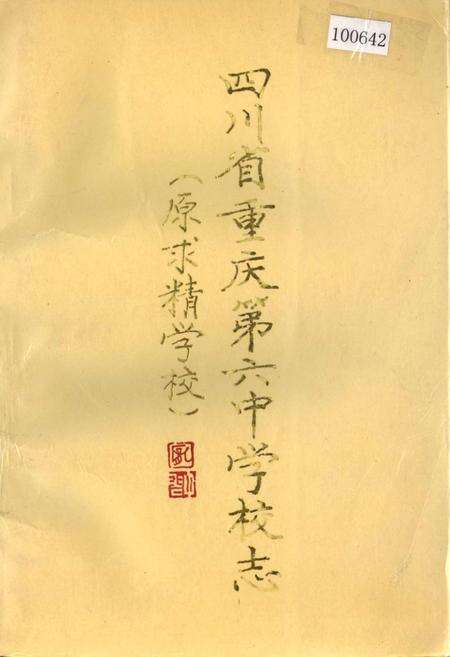 100642
四川省重庆第六中学校志
（原求精学校）